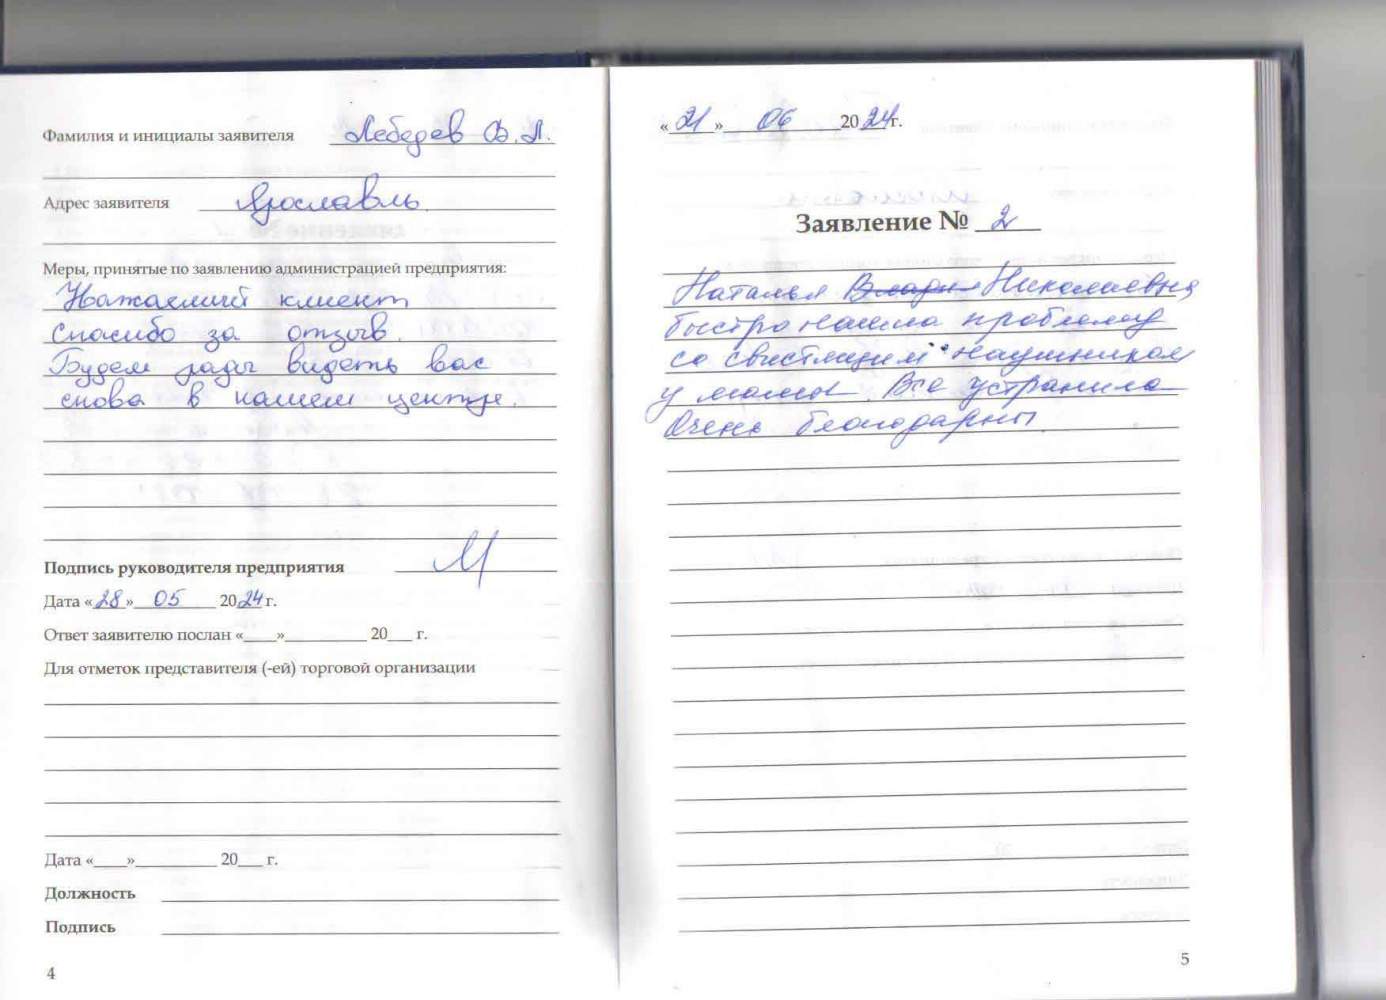 Фамилия и инициалы заявителя Лебедев В. А.
Адрес заявителя Ярославль
Меры, принятые по заявлению администрацией предприятия:
Уважаемый клиент
спасибо за отзыв.
Будем рады видеть вас
снова в нашем центре.
Подпись руководителя предприятия
Дата «28» 05 2024 г.
Ответ заявителю послан «____»__________ 20___ г.
Для отметок представителя (-ей) торговой организации
Дата «____»__________ 20___ г.
Должность
Подпись
4
«21» 06 2024г.
Заявление № 2
Наталья Николаевна
быстро нашла проблему
со свистящим наушником
у мамы. Все устранила
Очень благодарны.
5